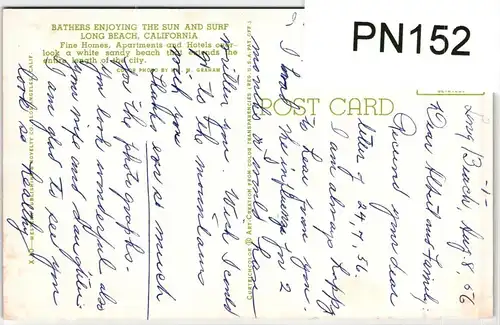 PN152
BATHERS ENJOYING THE SUN AND SURF
LONG BEACH, CALIFORNIA
Fine Homes, Apartments and Hotels over-
look a white sandy beach that extends the
entire length of the city.
COLOR PHOTO BY WM. M. GRAHAM
POST CARD
Long Beach, Aug. 8, 56
-1-
Dear Albert and Family:
Received your dear
letter of 24, 7, 56.
I am always happy
to hear from you.
I had the influenza for 2
months or would have
2
written you. Wish I could
go to the mountains
with you.
Thanks ever so much
for the photographs.
You look wonderful also
your wife and daughter.
I am glad to see you
look so healthy
CURTEICHCOLOR ART-CREATION FROM COLOR TRANSPARENCIES (REG. U.S.A. PAT. OFF.)